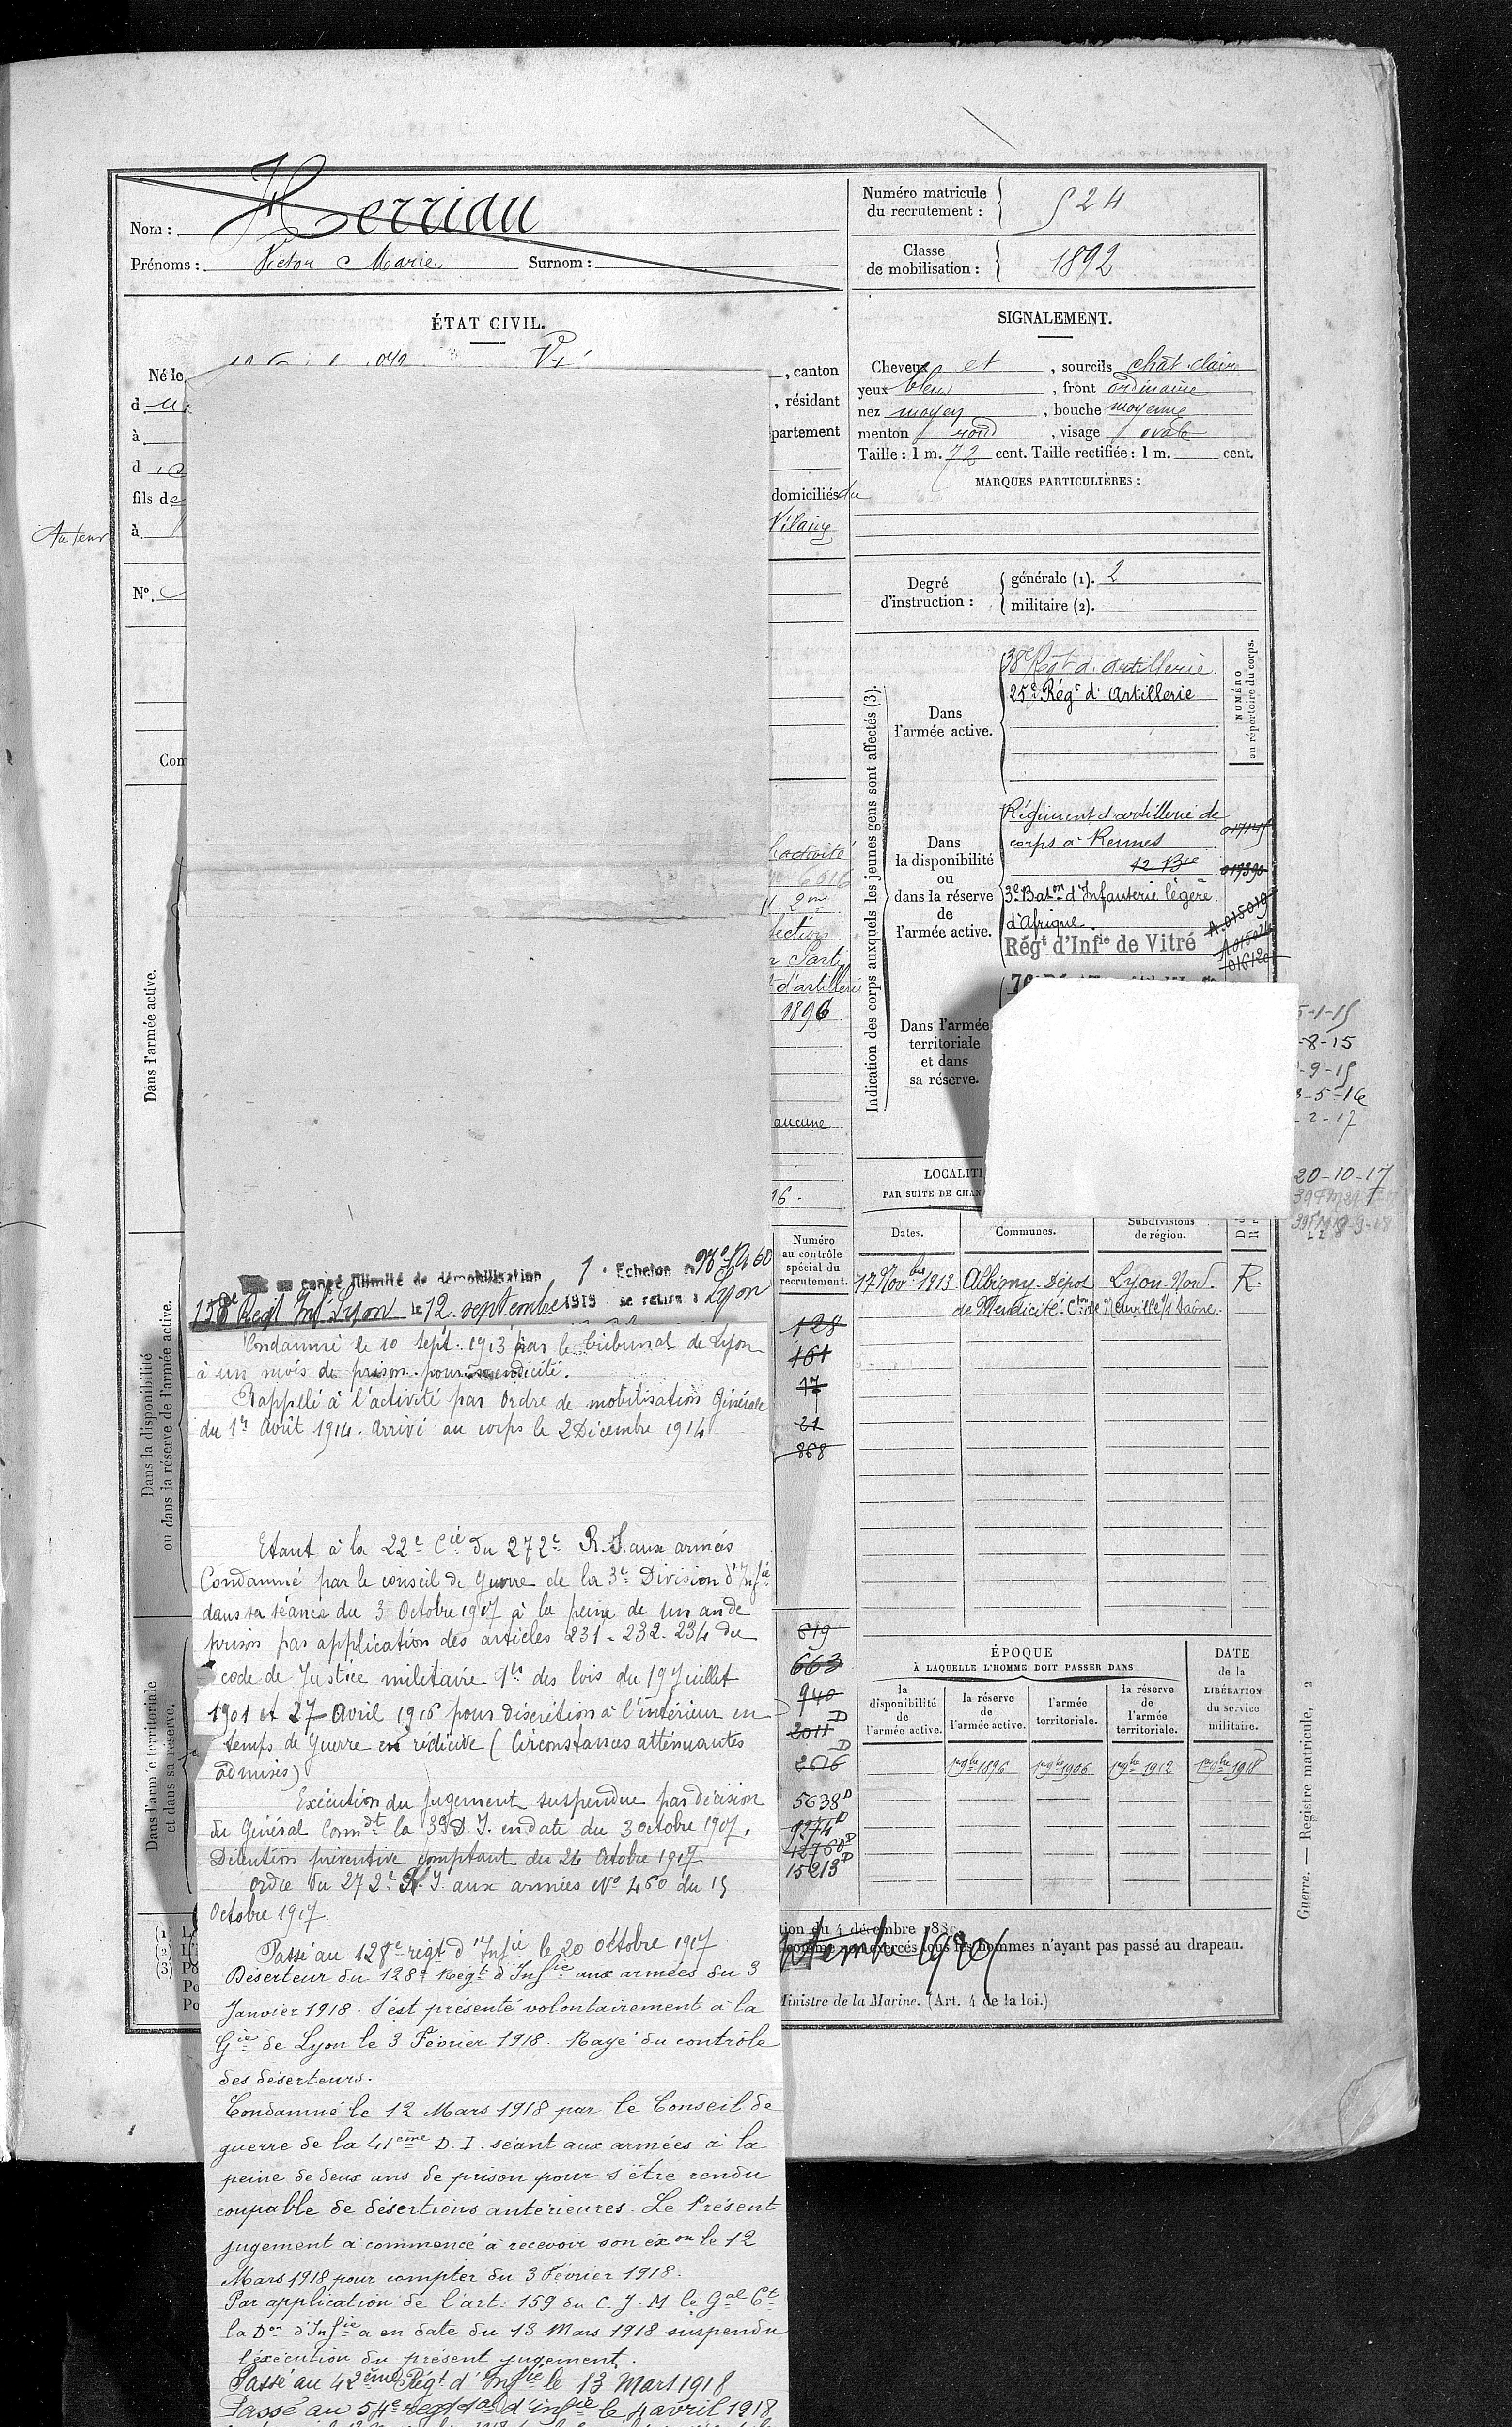 Nom : Herriau
Prénoms : Victor Marie Surnom :
Numéro matricule
du recrutement :
524
Classe
de mobilisation :
1892
ÉTAT CIVIL.
Né le
, canton
d
, résidant
à
partement
d
fils de
domiciliés du
à
Vilaine
Nº.
Con
SIGNALEMENT.
Cheveux et , sourcils chât clair
yeux bleus , front ordinaire
nez moyen , bouche moyenne
menton rond , visage ovale
Taille : 1 m. 72 cent. Taille rectifiée : 1 m. cent.
MARQUES PARTICULIÈRES :
Degré
d'instruction :
générale (1). 2
militaire (2).
Indication des corps auxquels les jeunes gens sont affectés (3).
NUMÉRO
au répertoire du corps.
Dans
l'armée active.
38e Régt d'artillerie
25e Régt d'Artillerie
Dans
la disponibilité
ou
dans la réserve
de
l'armée active.
Régiment d'artillerie de
corps à Rennes
12 Bie
3e Baton d'Infanterie légère
d'Afrique.
Régt d'Infie de Vitré
017390
A.015019
Dans l'armée
territoriale
et dans
sa réserve.
l'activité
6016
2me
d'artillerie
1896
aucune
16.
Dans l'armée active.
5-1-15
-8-15
-9-15
3-5-16
-2-17
20-10-17
LOCALITÉ
PAR SUITE DE CHAN
Dates.
Communes.
Subdivisions
de région.
17 Novbre 1913 Albigny-Dépôt Lyon-Nord. R.
de Mendicité. Cton de Neuville s/ Saône.
Numéro
au contrôle
spécial du
recrutement.
128
161
17
21
868
619
663
940
2011 D
2616 D
5638 D
9274 D
12760 D
15213 D
Dans la disponibilité
ou dans la réserve de l'armée active.
Dans l'armée territoriale
et dans sa réserve.
en congé illimité de démobilisation 1 . Echelon
158e Régt Inf Lyon le 12 septembre 1919 se retire à Lyon
Condamné le 10 Sept. 1913 par le tribunal de Lyon
à un mois de prison pour mendicité.
Rappelé à l'activité par Ordre de mobilisation Générale
du 1er Août 1914. Arrivé au corps le 2 Décembre 1914
Etant à la 22e Cie du 272e R.I. aux armées
Condamné par le conseil de Guerre de la 3e Division d'Infie
dans sa séance du 3 Octobre 1917 à la peine de un an de
prison par application des articles 231 - 232. 234 du
code de Justice militaire 1er des lois du 19 Juillet
1901 et 27 Avril 1916 pour désertion à l'intérieur en
temps de Guerre en récidive (Circonstances atténuantes
admises)
Exécution du Jugement suspendue par décision
du Général Commdt la 3e D.I. en date du 3 octobre 1917.
Détention préventive comptant du 26 Octobre 1917
Ordre du 272e R.I. aux armées Nº 460 du 15
Octobre 1917
Passé au 128e régt d'Infie le 20 Octobre 1917
Déserteur du 128e Régt d'Infie aux armées du 3
Janvier 1918. S'est présenté volontairement à la
Gie de Lyon le 3 Février 1918. Rayé du contrôle
des déserteurs.
Condamné le 12 Mars 1918 par le Conseil de
guerre de la 41ème D.I. séant aux armées à la
peine de deux ans de prison pour s'être rendu
coupable de désertions antérieures. Le Présent
jugement a commencé à recevoir son éxon le 12
Mars 1918 pour compter du 3 Février 1918.
Par application de l'art. 159 du C.J.M le Gal Ct
la Don d'Infie a en date du 13 Mars 1918 suspendu
l'éxécution du présent jugement.
Passé au 42ème Régt d'Infie le 13 Mars 1918
Passé au 54e regt al d'infie le 4 avril 1918
ÉPOQUE
À LAQUELLE L'HOMME DOIT PASSER DANS
la
disponibilité
de
l'armée active.
la réserve
de
l'armée active.
l'armée
territoriale.
la réserve
de
l'armée
territoriale.
DATE
de la
LIBÉRATION
du service
militaire.
1er 9bre 1896
1er 9bre 1906
1er 9bre 1912
1er 9bre 1918
tion du 4 décembre 188
tous les hommes n'ayant pas passé au drapeau.
Ministre de la Marine. (Art. 4 de la loi.)
(1)
(2)
(3)
Guerre. — Registre matricule, 2